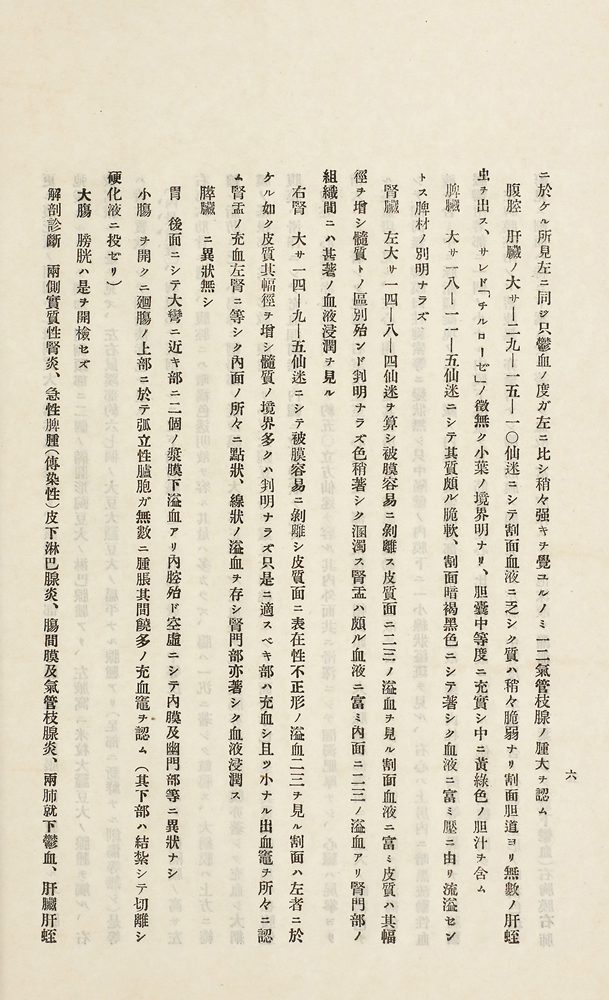 ニ於ケル所見左ニ同ジ只鬱血ノ度ガ左ニ比シ稍々强キヲ覺ユルノミ一二氣管枝腺ノ腫大ヲ認ム
腹腔　肝臟ノ大サ二九―一五―一〇仙迷ニシテ割面血液ニ乏シク質ハ稍々脆弱ナリ割面胆道ヨリ無數ノ肝蛭
虫ヲ出ス、サレド「チルローゼ」ノ徵無ク小葉ノ境界明ナリ、胆囊中等度ニ充實シ中ニ黃綠色ノ胆汁ヲ含ム
脾臟　大サ一八―一一―五仙迷ニシテ其質頗ル脆軟、割面暗褐黑色ニシテ著シク血液ニ富ミ壓ニ由リ流溢セン
トス脾材ノ別明ナラズ
腎臟　左大サ一四―八―四仙迷ヲ算シ被膜容易ニ剝離ス皮質面ニ二三ノ溢血ヲ見ル割面血液ニ富ミ皮質ハ其幅
徑ヲ增シ髓質トノ區別殆ンド判明ナラズ色稍著シク溷濁ス腎盂ハ頗ル血液ニ富ミ內面ニ二三ノ溢血アリ腎門部ノ
組織間ニハ甚著ノ血液浸潤ヲ見ル
右腎　大サ一四―九―五仙迷ニシテ被膜容易ニ剝離シ皮質面ニ表在性不正形ノ溢血二三ヲ見ル割面ハ左者ニ於
ケル如ク皮質其幅徑ヲ增シ髓質ノ境界多クハ判明ナラズ只是ニ適スベキ部ハ充血シ且ツ小ナル出血竈ヲ所々ニ認
ム腎盂ノ充血左腎ニ等シク內面ノ所々ニ點狀、線狀ノ溢血ヲ存シ腎門部亦著シク血液浸潤ス
膵臟　ニ異狀無シ
胃　後面ニシテ大彎ニ近キ部ニ二個ノ漿膜下溢血アリ內腔殆ド空虛ニシテ內膜及幽門部等ニ異狀ナシ
小膓　ヲ開クニ廻膓ノ上部ニ於テ孤立性臚胞ガ無數ニ腫脹其間饒多ノ充血竈ヲ認ム（其下部ハ結紮シテ切離シ
硬化液ニ投ゼリ）
大膓　膀胱ハ是ヲ開檢セズ
解剖診斷　兩側實質性腎炎、急性脾腫（傳染性）皮下淋巴腺炎、膓間膜及氣管枝腺炎、兩肺就下鬱血、肝臟肝蛭
六